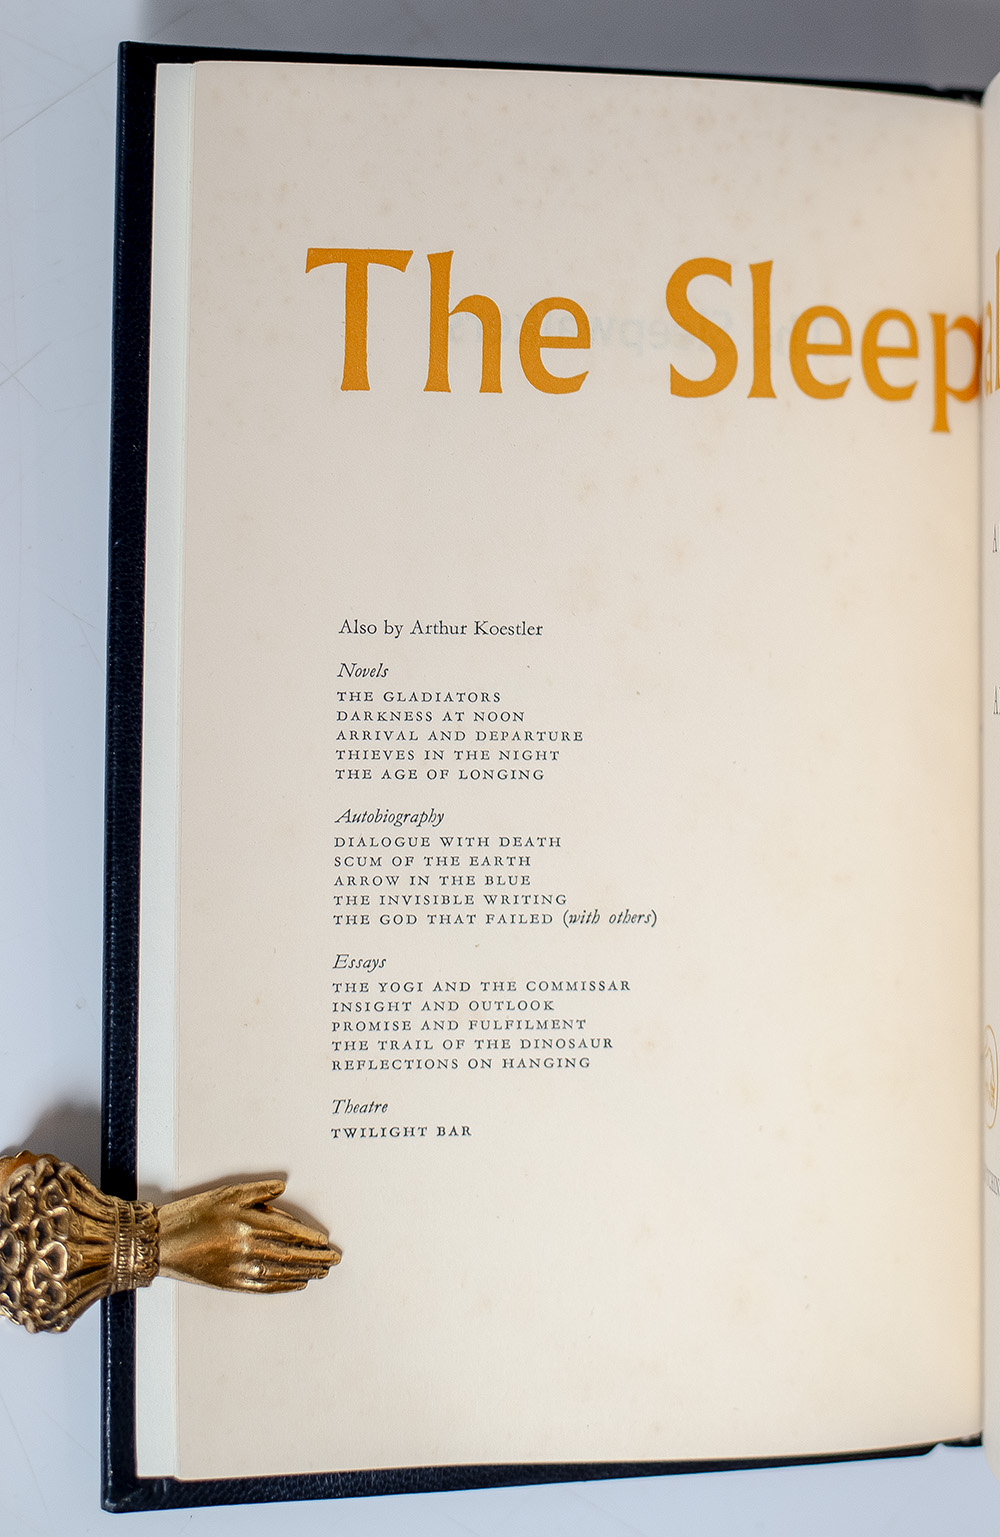 The Sleep
Also by Arthur Koestler
Novels
THE GLADIATORS
DARKNESS AT NOON
ARRIVAL AND DEPARTURE
THIEVES IN THE NIGHT
THE AGE OF LONGING
Autobiography
DIALOGUE WITH DEATH
SCUM OF THE EARTH
ARROW IN THE BLUE
THE INVISIBLE WRITING
THE GOD THAT FAILED (with others)
Essays
THE YOGI AND THE COMMISSAR
INSIGHT AND OUTLOOK
PROMISE AND FULFILMENT
THE TRAIL OF THE DINOSAUR
REFLECTIONS ON HANGING
Theatre
TWILIGHT BAR